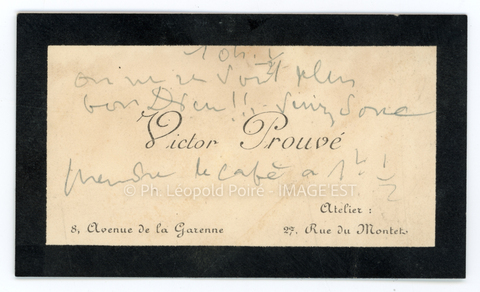 on ne se voit plus
bon Dieu!! Venez donc
Victor Prouvé
prendre le café à 1h 1/2
© Ph. Léopold Poiré - IMAGE'EST
Atelier :
8, Avenue de la Garenne
27, Rue du Montet